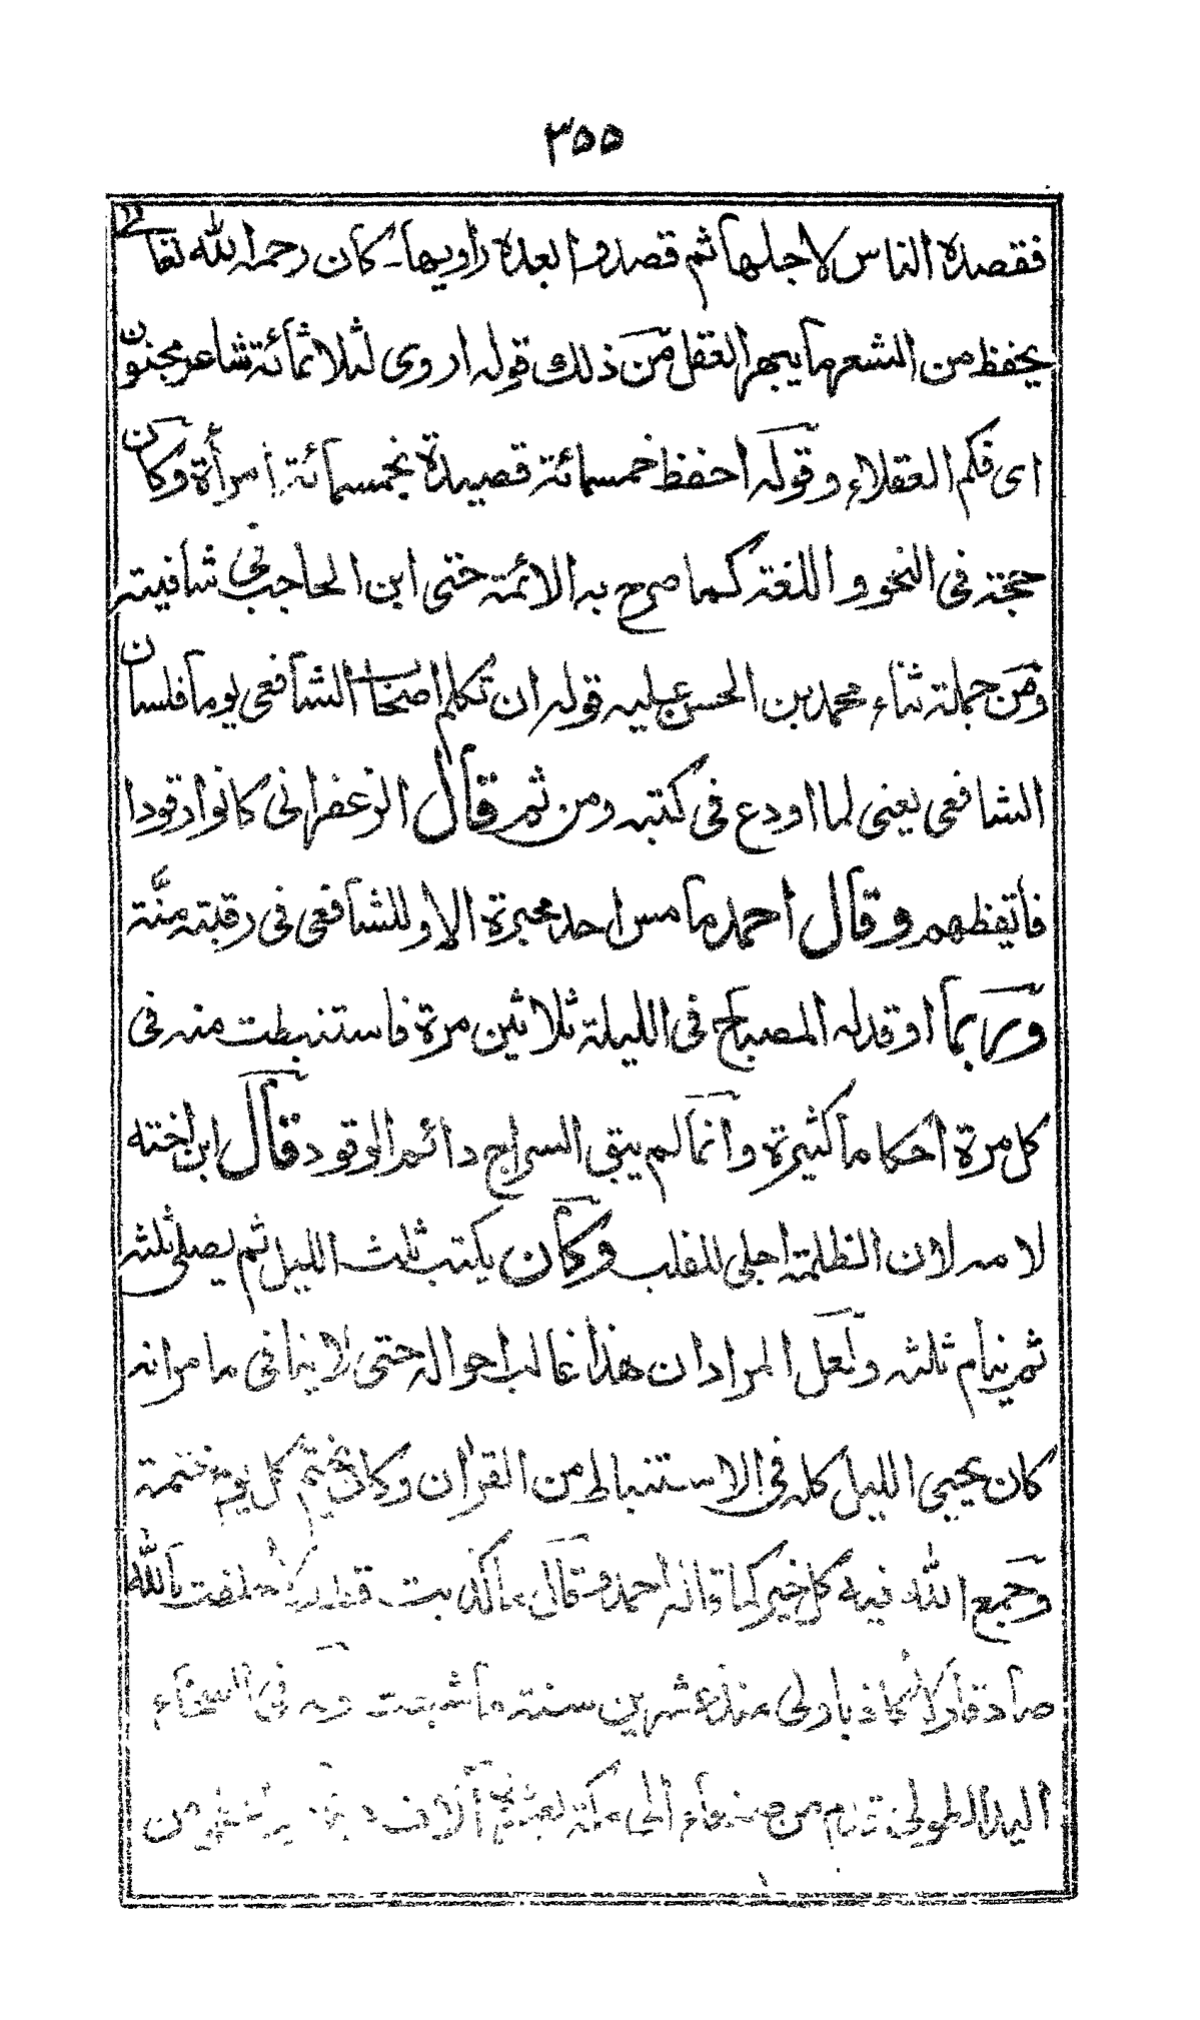 ٣٥٥
فقصده الناس لاجلها ثم قصدوا بعده راويها۔ كان رحمه الله تعالى
يحفظ من الشعر ما يبهر العقل ومن ذلك قوله اروى لثلاثمائة شاعر مجنون
اى فكم العقلاء وقوله احفظ خمسمائة قصيدة بخمسمائة امرأة وكان
حجة فى النحو واللغة كما صرح به الائمة حتى ابن الحاجب فى شافيته
ومن جملة ثناء محمد بن الحسن عليه قوله ان تكلم اصحاب الشافعى يوما فلسان
الشافعى يعنى لما اودع فى كتبه ومن ثم قال الزعفرانى كانوا رقودا
فايقظهم وقال احمد ما مس احد محبرة الا وللشافعى فى رقبته منّة
وربما اوقد له المصباح فى الليلة ثلاثين مرة فاستنبطت منه فى
كل مرة احكاما كثيرة وانما لم يبق السراج دائم الوقود قال ابن اخته
لامه لان الظلمة اجلى للقلب وكان يكتب ثلث الليل ثم يصلى ثلثه
ثم ينام ثلثه ولعل المراد ان هذا غالب احواله حتى لا ينافى ما مر انه
كان يحيى الليل كله فى الاستنباط من القرأن وكان يختم كل يوم ختمة
وجمع الله فيه كل خير كما قاله احمد وقال ما كذبت قط ولا حلفت بالله
صادقا ولا كاذبا ولى منذ عشرين سنة ما شبعت وله فى السخاء
اليد الطولى قدم من صنعاء الى مكة بعشرة آلاف